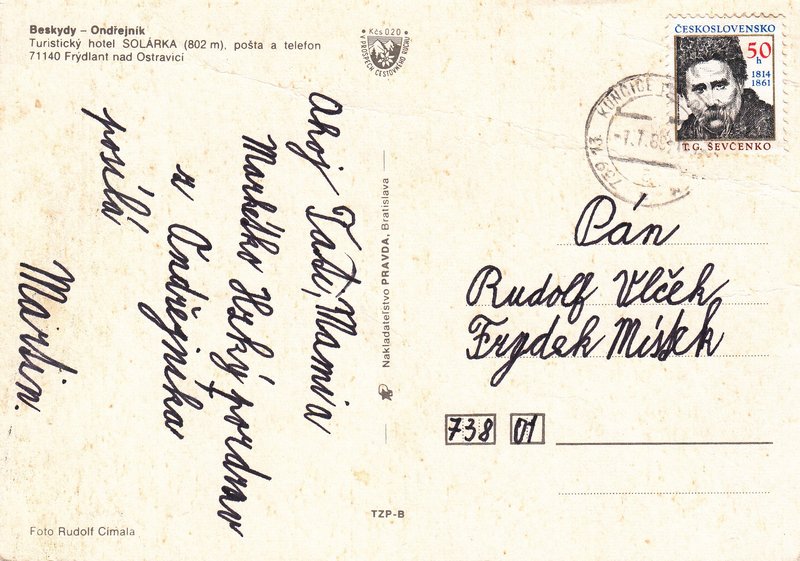 Beskydy – Ondřejník
Turistický hotel SOLÁRKA (802 m), pošta a telefon
71140 Frýdlant nad Ostravicí
Kčs 0.20
V PROSPĚCH CESTOVNÍHO RUCHU
ČESKOSLOVENSKO
50
h
1814
1861
T.G. ŠEVČENKO
739 13 KUNČICE
-7.7.88
Ahoj Tati, Mamia
Markétko Hezký pozdrav
z Ondřejníka
posílá
Martin.
Nakladatelství PRAVDA, Bratislava
Pán
Rudolf Vlček
Frydek Místek
738 01
TZP-B
Foto Rudolf Cimala